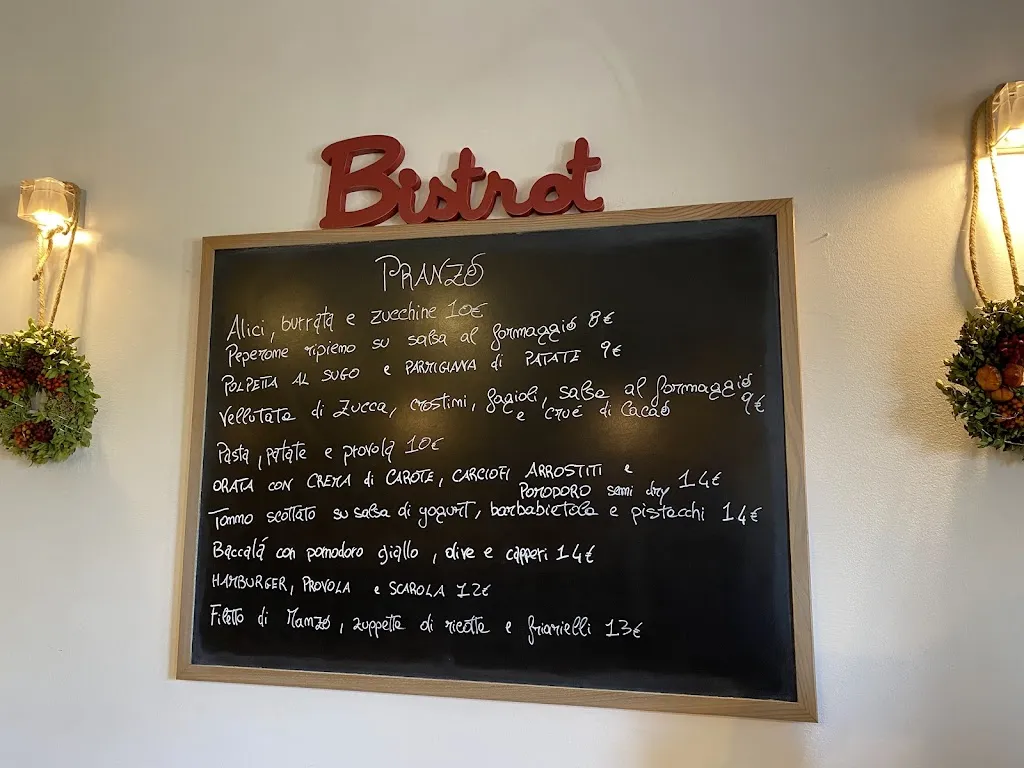 Bistrot
PRANZO
Alici, burrata e zucchine 10€
Peperone ripieno su salsa al formaggio 8€
POLPETTA AL SUGO e PARMIGIANA di PATATE 9€
Vellutata di Zucca, crostini, fagioli, salsa al formaggio
e cruè di Cacao 9€
Pasta, patate e provola 10€
ORATA CON CREMA di CAROTE, CARCIOFI ARROSTITI e
POMODORO semi dry 14€
Tonno scottato su salsa di yogurt, barbabietola e pistacchi 14€
Baccalà con pomodoro giallo, olive e capperi 14€
HAMBURGER, PROVOLA e SCAROLA 12€
Filetto di Manzo, zuppetta di ricotta e friarielli 13€